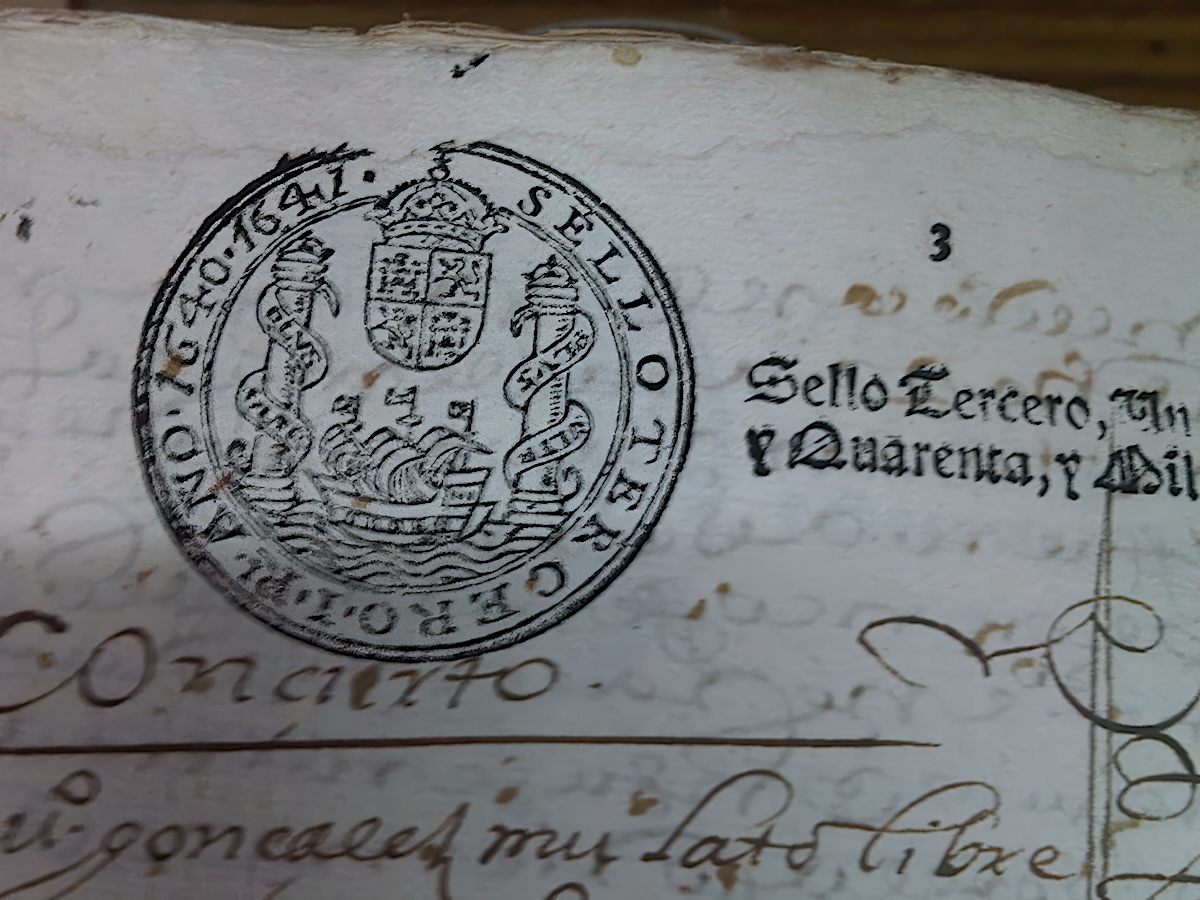 SELLO TERCERO · I · PL ANO · 1640 · 1641 ·
3
Sello Tercero, Un
y Quarenta, y Mil
Concierto.
gonçalez mulato libre